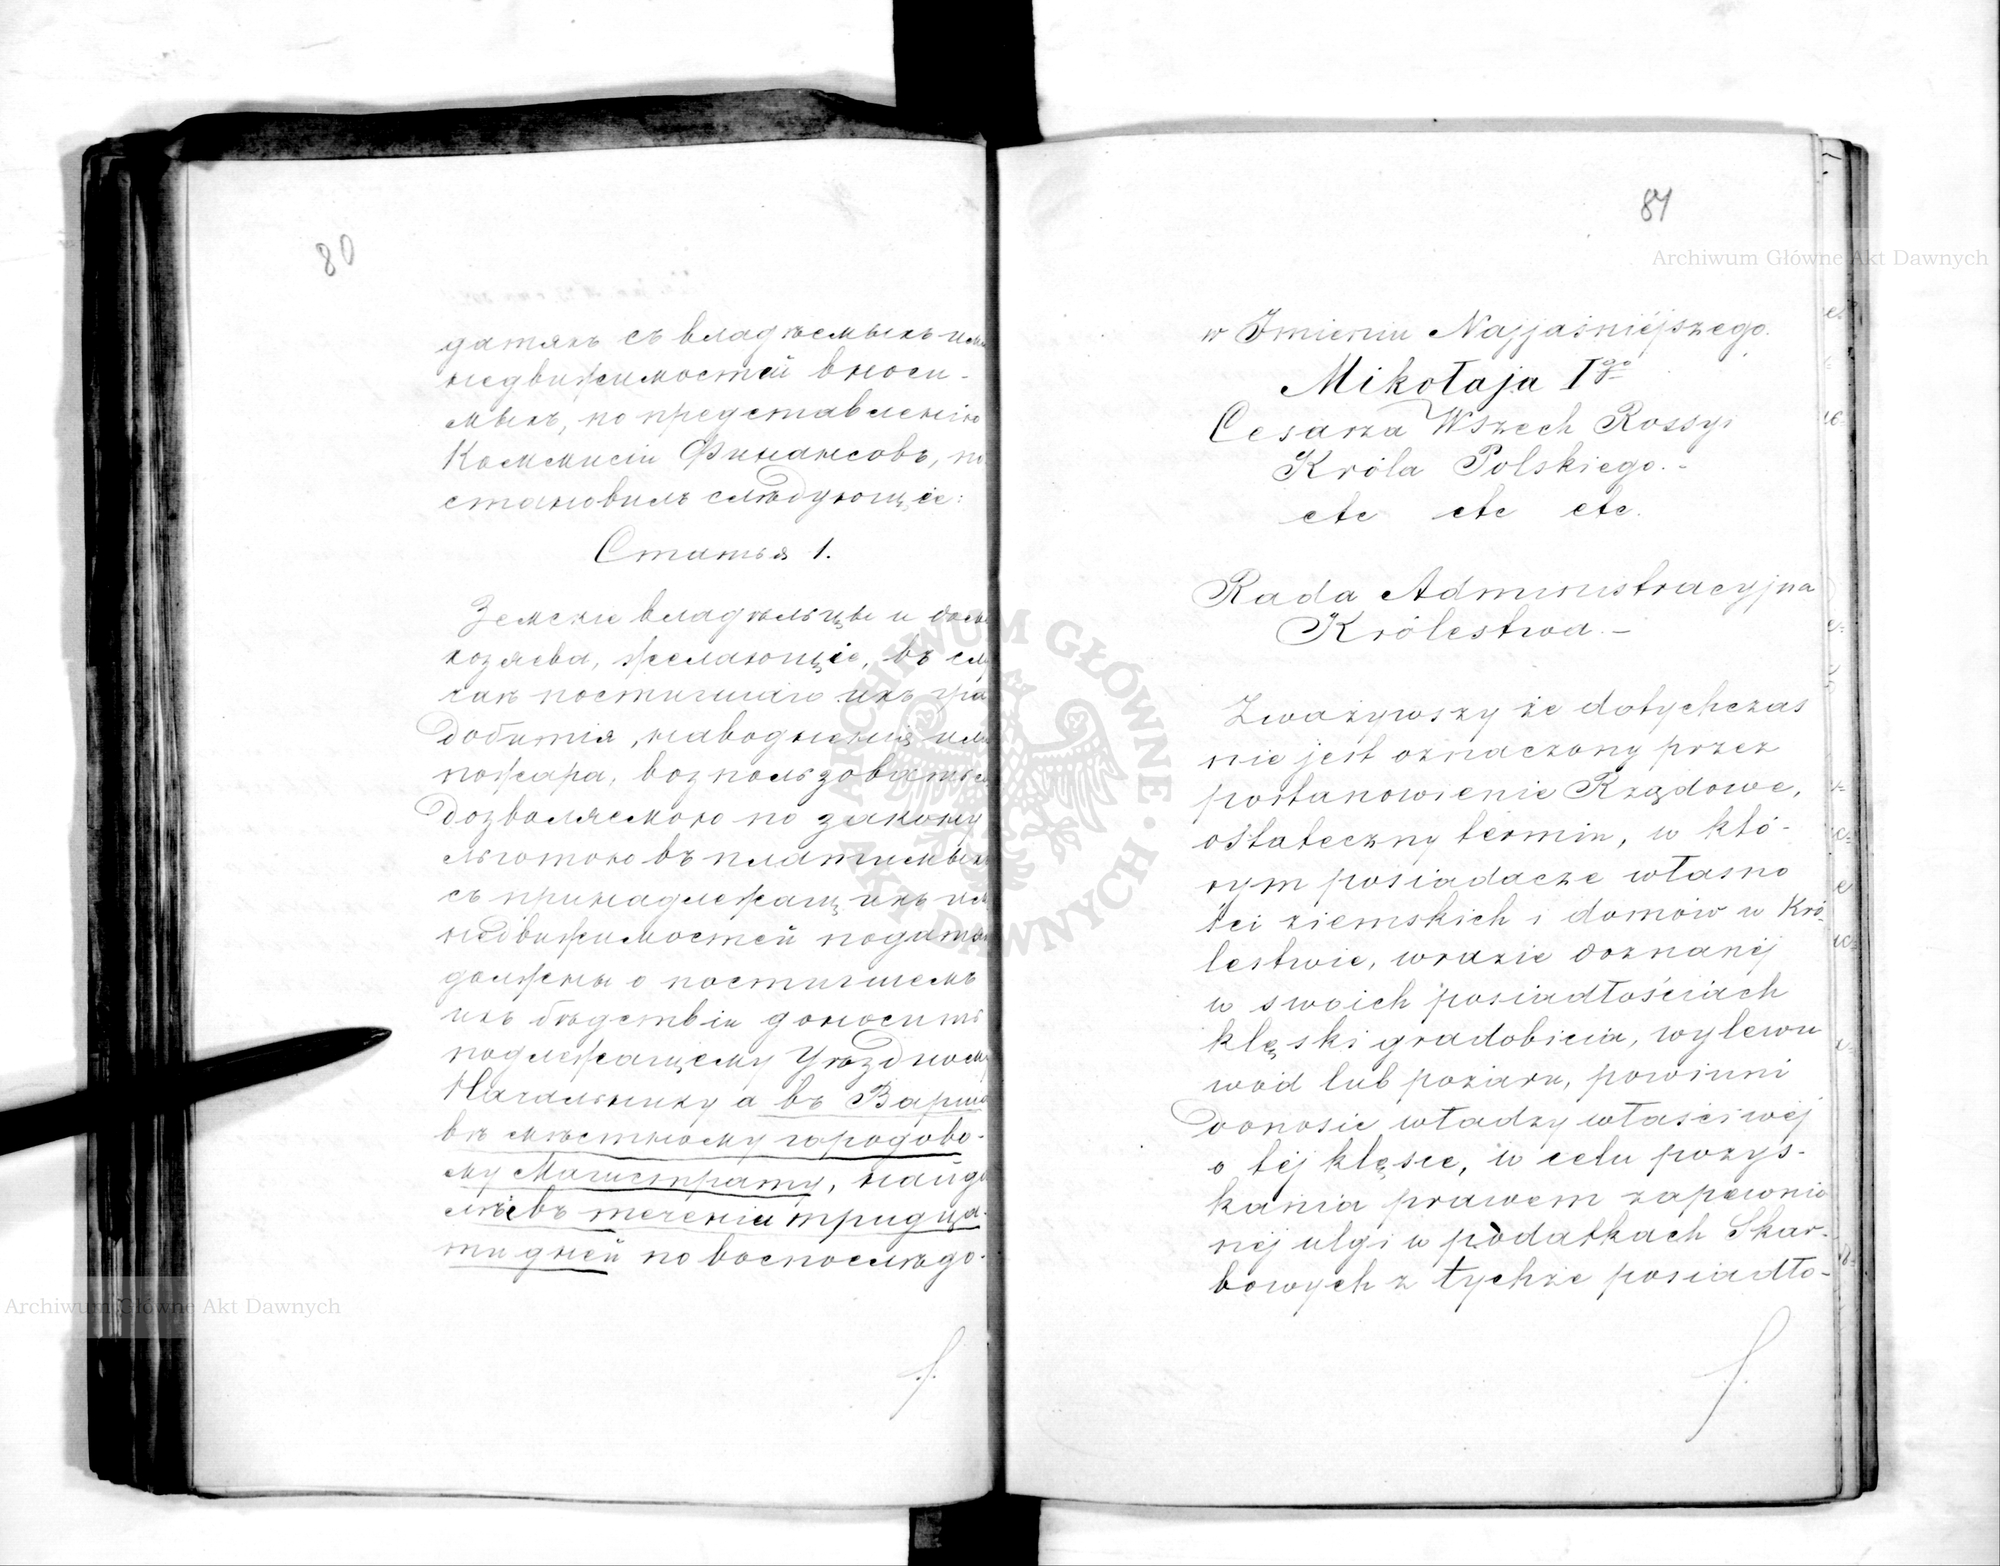 80
датяхъ съ владѣемыхъ ими
недвижимостей вноси-
мыхъ, по представленію
Коммисіи Финансовъ, по
становилъ слѣдующіе:
Статья 1.
Земскіе владѣльцы и домо
хозяева, желающіе, въ слу
чаѣ постигшаго ихъ гра
добитія, наводненія или
пожара, воспользоваться
дозволяемою по закону
льготою въ платимыхъ
съ принадлежащихъ имъ
недвижимостей податяхъ
должны о постигшемъ
ихъ бѣдствіи доносить
подлежащему Уѣздному
Начальнику а въ Варша
вѣ мѣстному городово-
му Магистрату,
въ теченіи тридца-
ти дней по воспослѣдо-
81
Archiwum Główne Akt Dawnych
w Imieniu Najjaśniéjszego.
Mikołaja Igo
Cesarza Wszech Rossyi
Króla Polskiego.-
etc etc etc.
Rada Administracyjna
Królestwa.-
Zważywszy że dotychczas
nie jest oznaczony przez
postanowienie Rządowe,
ostateczny termin, w któ-
rym posiadacze własno
ści ziemskich i domów w Kró-
lestwie, wrazie doznanéj
w swoich posiadłościach
klęski gradobicia, wylewu
wód lub pożaru, powinni
donosić władzy właściwéj
o téj klęsce, w celu pozys-
kania prawem zapewnio
néj ulgi w podatkach Skar-
bowych z tychże posiadło-
Archiwum Główne Akt Dawnych
ARCHIWUM GŁÓWNE AKT DAWNYCH